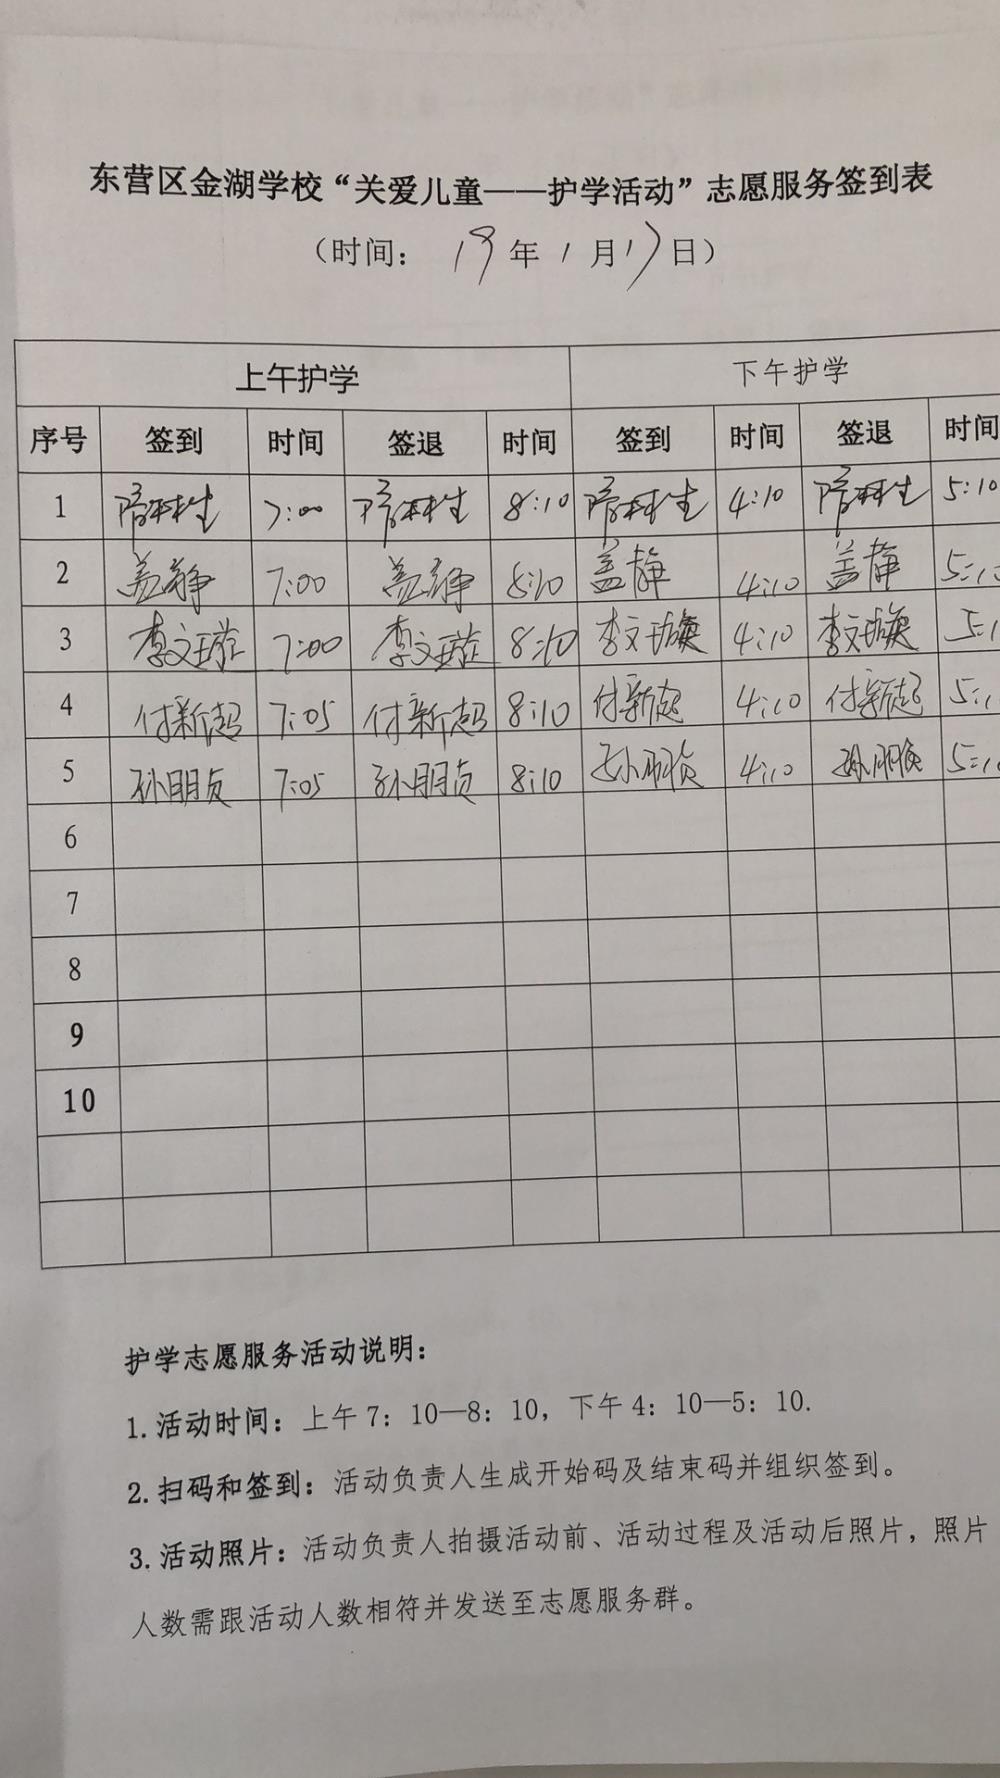 东营区金湖学校“关爱儿童——护学活动”志愿服务签到表
（时间： 19年1月17日）
上午护学 下午护学
序号 签到 时间 签退 时间 签到 时间 签退 时间
1 隋林生 7:00 隋林生 8:10 隋林生 4:10 隋林生 5:10
2 盖静 7:00 盖静 8:10 盖静 4:10 盖静 5:10
3 李文 7:00 李文 8:10 李文 4:10 李文 5:1
4 付新起 7:05 付新起 8:10 付新起 4:10 付新起 5:1
5 孙明贞 7:05 孙明贞 8:10 孙明贞 4:10 孙明贞 5:10
6
7
8
9
10
护学志愿服务活动说明：
1.活动时间：上午7：10—8：10，下午4：10—5：10.
2.扫码和签到：活动负责人生成开始码及结束码并组织签到。
3.活动照片：活动负责人拍摄活动前、活动过程及活动后照片，照片
人数需跟活动人数相符并发送至志愿服务群。